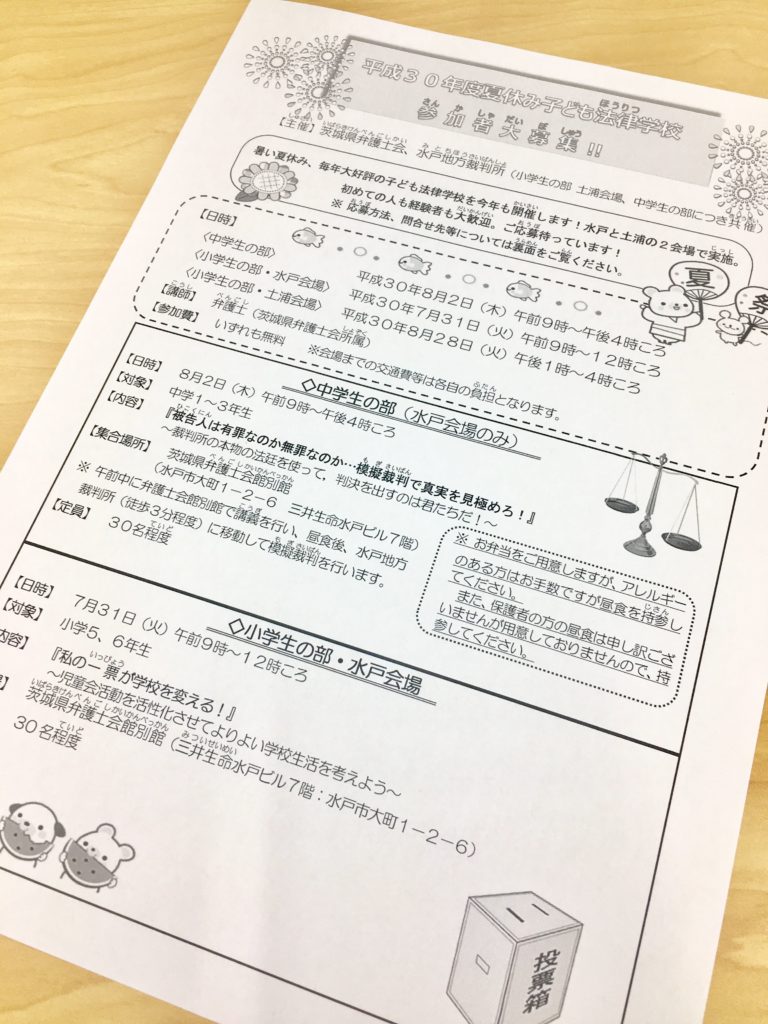 平成30年度夏休み子ども法律学校
参加者大募集!!
【主催】茨城県弁護士会、水戸地方裁判所（小学生の部 土浦会場、中学生の部につき共催）
暑い夏休み、毎年大好評の子ども法律学校を今年も開催します！水戸と土浦の２会場で実施。
初めての人も経験者も大歓迎。ご応募待っています！
※ 応募方法、問合せ先等については裏面をご覧ください。
夏
祭
【日時】
〈中学生の部〉 平成30年8月2日（木）午前9時～午後4時ころ
〈小学生の部・水戸会場〉 平成30年7月31日（火）午前9時～12時ころ
〈小学生の部・土浦会場〉 平成30年8月28日（火）午後1時～4時ころ
【講師】 弁護士（茨城県弁護士会所属）
【参加費】 いずれも無料 ※会場までの交通費等は各自の負担となります。
◇中学生の部（水戸会場のみ）
【日時】 8月2日（木）午前9時～午後4時ころ
【対象】 中学1～3年生
【内容】 『被告人は有罪なのか無罪なのか…模擬裁判で真実を見極めろ！』
～裁判所の本物の法廷を使って，判決を出すのは君たちだ！～
【集合場所】 茨城県弁護士会館別館
（水戸市大町１－２－６ 三井生命水戸ビル７階）
※ 午前中に弁護士会館別館で講義を行い、昼食後、水戸地方
裁判所（徒歩３分程度）に移動して模擬裁判を行います。
【定員】 ３０名程度
※ お弁当をご用意しますが、アレルギー
のある方はお手数ですが昼食を持参し
てください。
また、保護者の方の昼食は申し訳ござ
いませんが用意しておりませんので、持
参してください。
◇小学生の部・水戸会場
【日時】 7月31日（火）午前9時～12時ころ
【対象】 小学5、6年生
内容】 『私の一票が学校を変える！』
～児童会活動を活性化させてよりよい学校生活を考えよう～
茨城県弁護士会館別館（三井生命水戸ビル７階：水戸市大町１－２－６）
３０名程度
投票箱